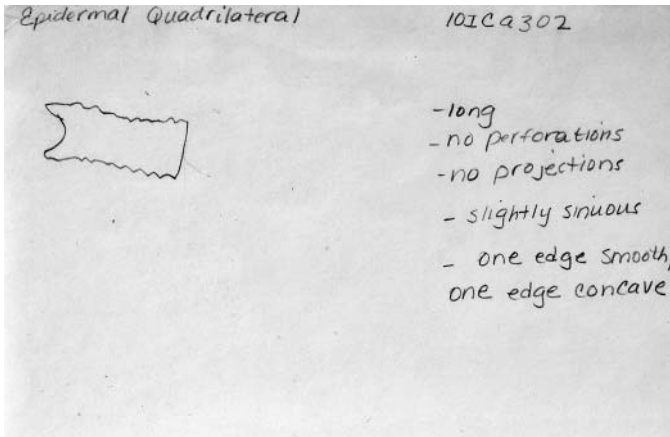 Epidermal Quadrilateral
10ICa302
-long
-no perforations
-no projections
- slightly sinuous
- one edge smooth,
one edge concave